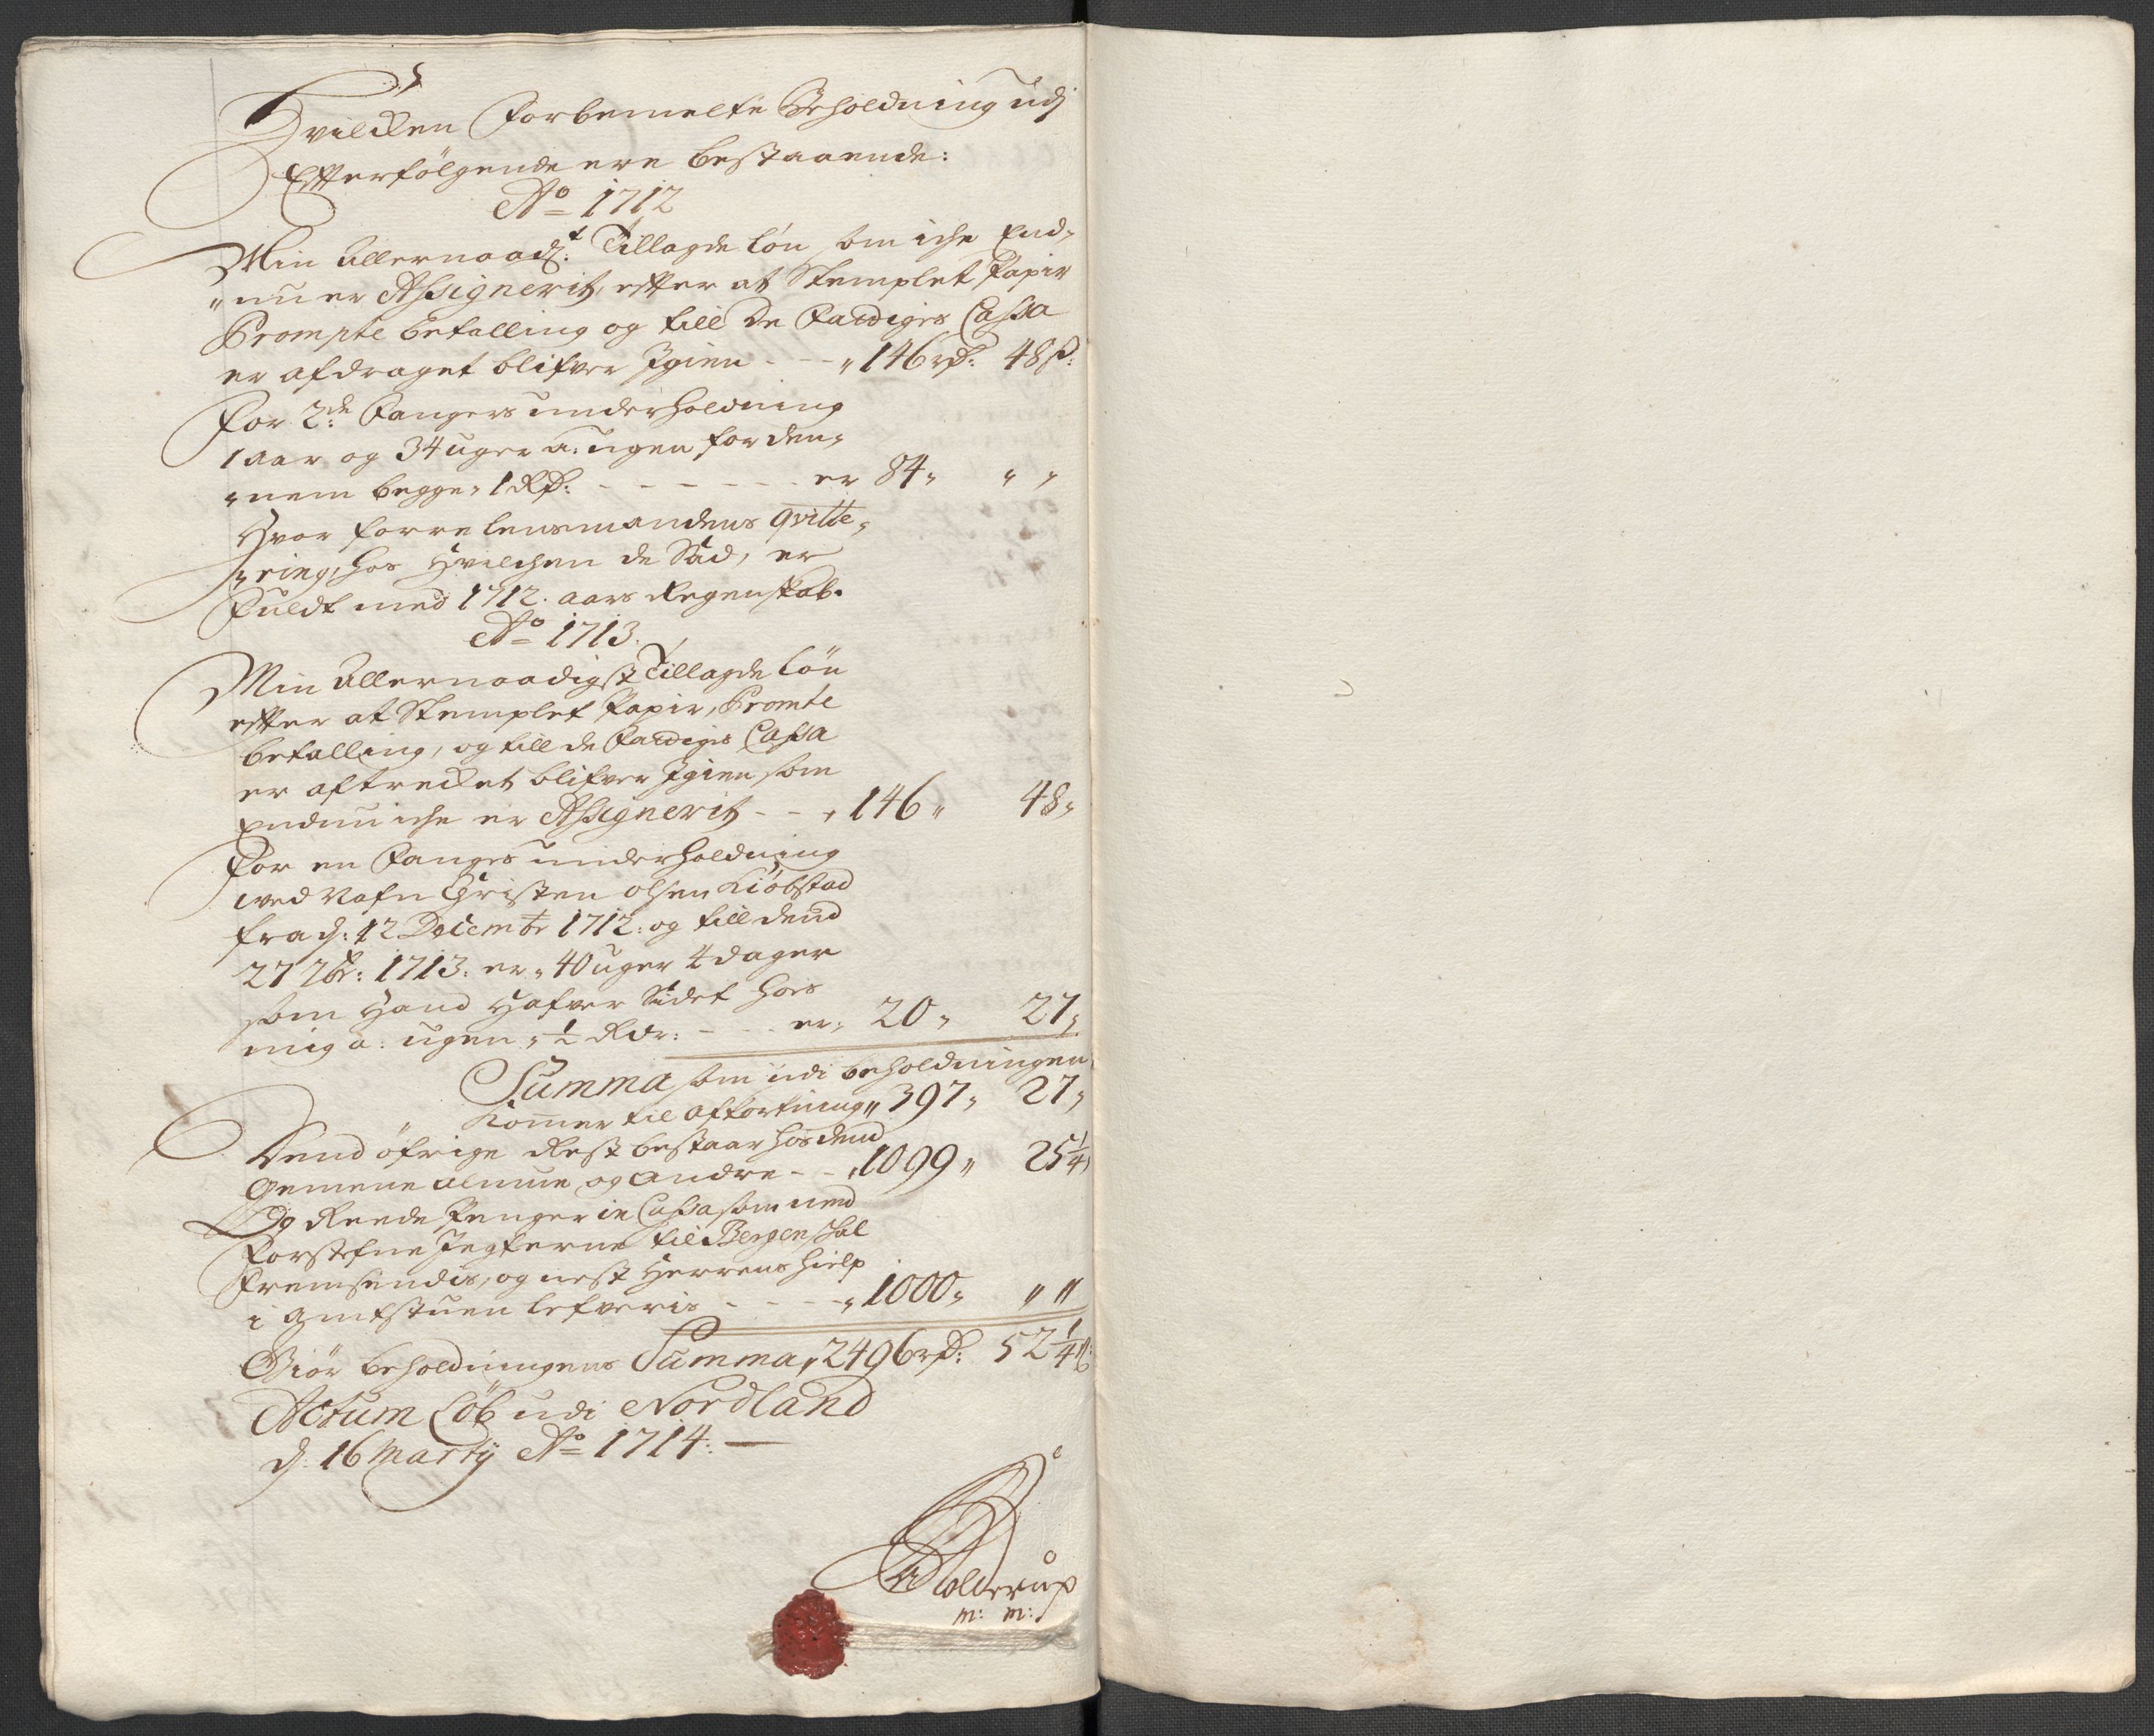 Hvilcken Forbemelte Beholdning udj
Efterfølgende ere bestaaende:
Ao 1712
Min Allernaadst: Tillagde Løn som iche End-
„nu er Assignerit, efter at Stemplet Papir
Prompte betalling og till De Fattiges Cassa
er afdraget blifver Igien - - - „ 146 rd: 48 s:
For 2de Fangers underholdning
1 aar og 34 uger a: ugen for den-
„nem begge „ 1 Rd: - - - - - - er 84 „ „ „
Hvor forre lensmandens qvitte-
„ring, hos Hvilchen de Sad, er
Fuldt med 1712. aars Regenskab.
Ao 1713.
Min Allernaadigst Tillagde Løn
efter at Stemplet Papir, Promte
betalling, og till de Fattigis Cassa
er aftrecket blifver Igien som
Endnu iche er Assignerit - - „ 146 „ 48 „
For en Fanges underholdning
ved Nafn Christen olsen Kiöbstad
fra d: 12 Decembr 1712: og till dend
27 7br: 1713: er „ 40 uger 4 dager
som Hand Hafver Sidet hos
mig a: ugen „ 1/2 Rdr: - - - er „ 20 „ 27 „
Summa som udi beholdningen
Kommer til afkortning „ 397 „ 27 „
Dend öfrige Rest bestaar hos dend
gemene almue og andre - - „ 1099 „ 25 1/4 „
Og Reede Penger in Cassa som med
Forstefne Jegterne til Bergen skal
Fremsendis, og nest Herrens hielp
i Amtstuen lefveris - - - - „ 1000 „ „ „
Giör beholdningens Summa „ 2496 rd: 52 1/4 s:
Actum Löb udi Nordland
d. 16 Marty Ao 1714: —
Solderup
m: m: